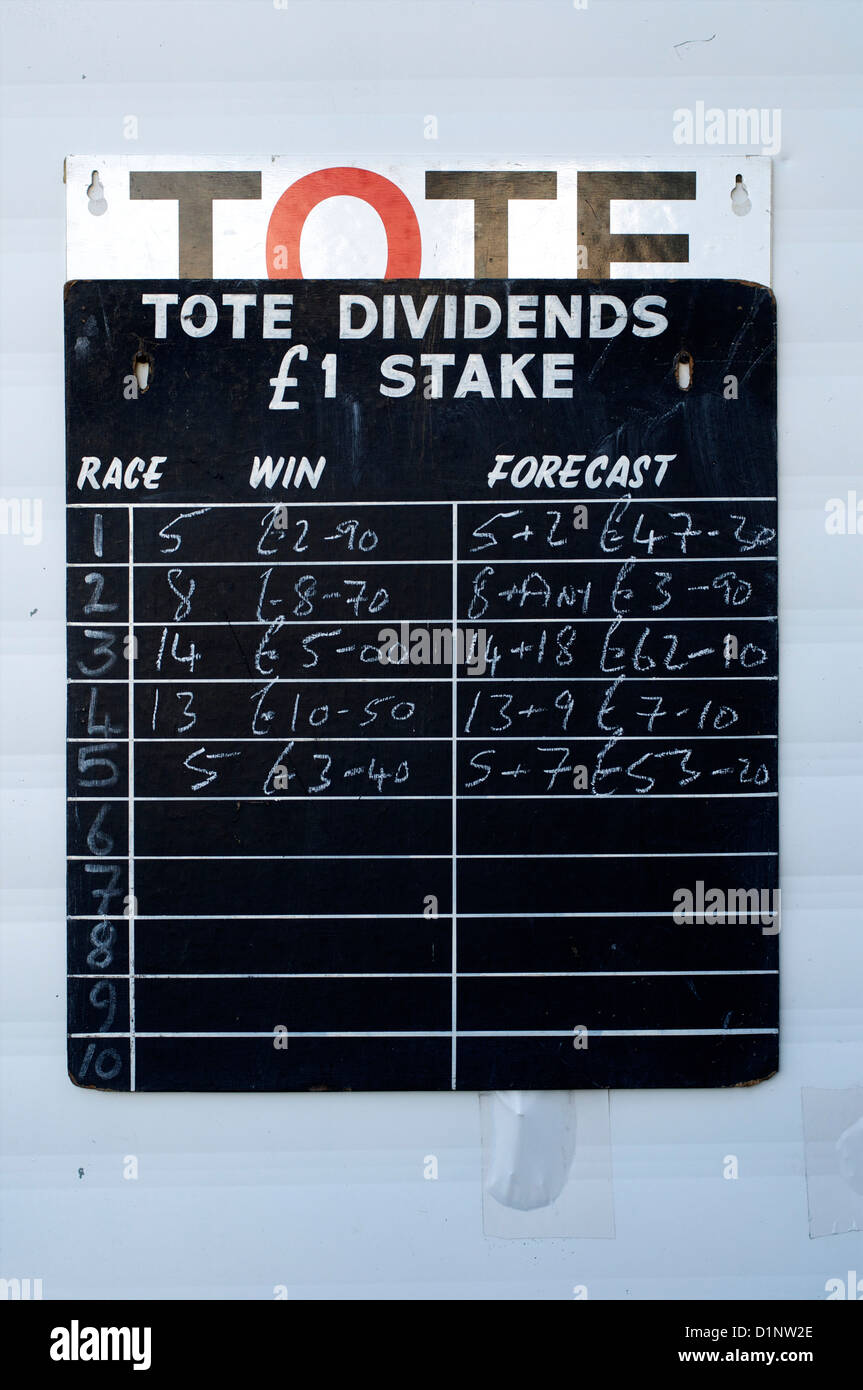 TOTE
TOTE DIVIDENDS
£1 STAKE
RACE WIN FORECAST
1 5 £2-90 5+2 £47-30
2 8 £8-70 8+ANY £3-90
3 14 £5-00 14+18 £62-10
4 13 £10-50 13+9 £7-10
5 5 £3-40 5+7 £53-20
6
7
8
9
10
alamy
Image ID: D1NW2E
www.alamy.com